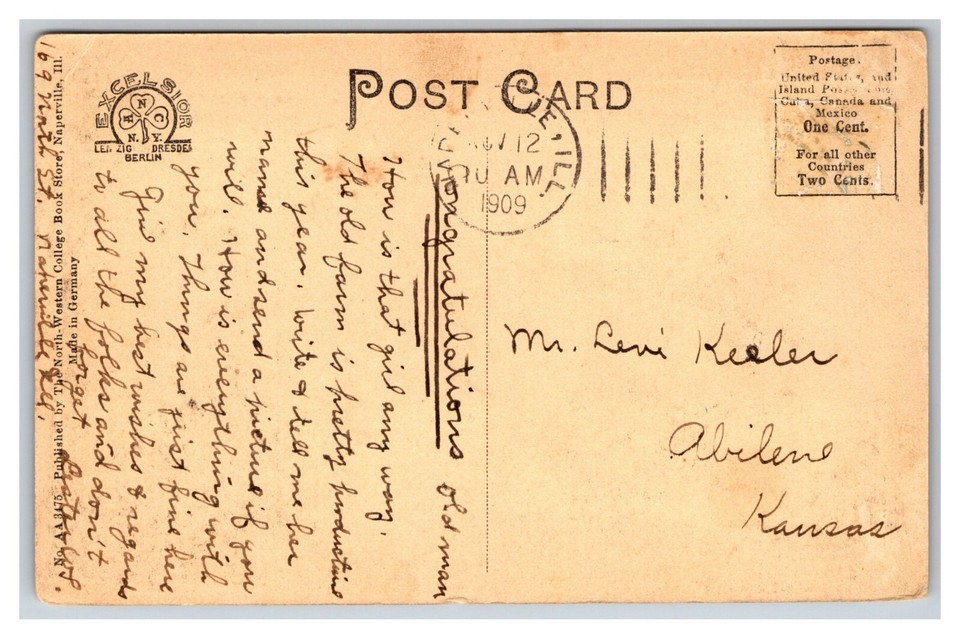 POST CARD
EXCELSIOR
N.Y.
LEIPZIG DRESDEN
BERLIN
Postage.
United States, and
Island Possessions
Cuba, Canada and
Mexico
One Cent.
For all other
Countries
Two Cents.
ILL
NOV 12
AM
1909
Congratulations old man
How is that girl any way.
The old farm is pretty productive
this year. Write & tell me her
name and send a picture if you
will. How is everything with
you. Things are just fine here
Give my best wishes & regards
to all the folks and don't
forget
Mr. Levi Keeler
Abilene
Kansas
No. AA 3475 Published by The North-Western College Book Store, Naperville, Ill.
Made in Germany